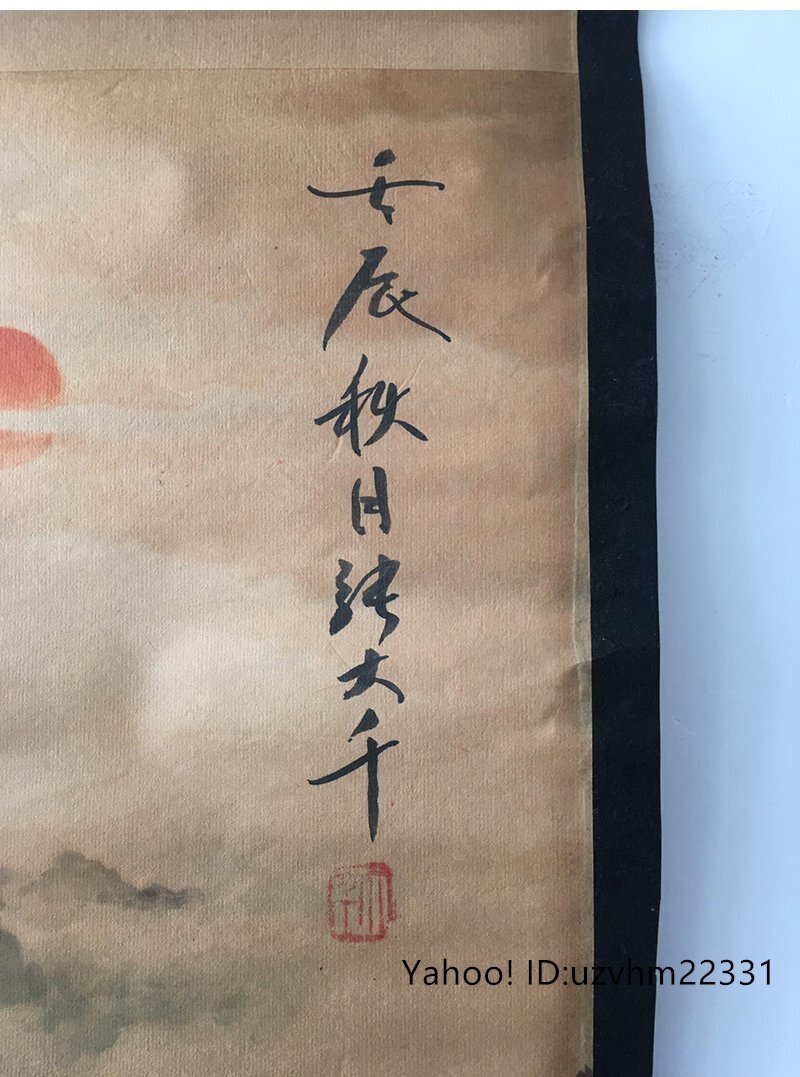 壬辰秋月張大千
Yahoo! ID:uzvhm22331